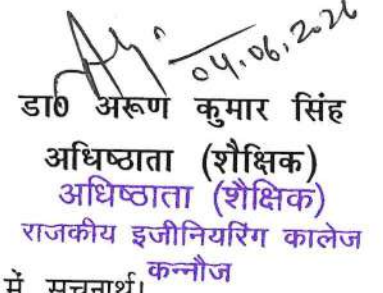 04.06.2026
डा0 अरूण कुमार सिंह
अधिष्ठाता (शैक्षिक)
अधिष्ठाता (शैक्षिक)
राजकीय इजीनियरिंग कालेज
कन्नौज
में सूचनार्थ।